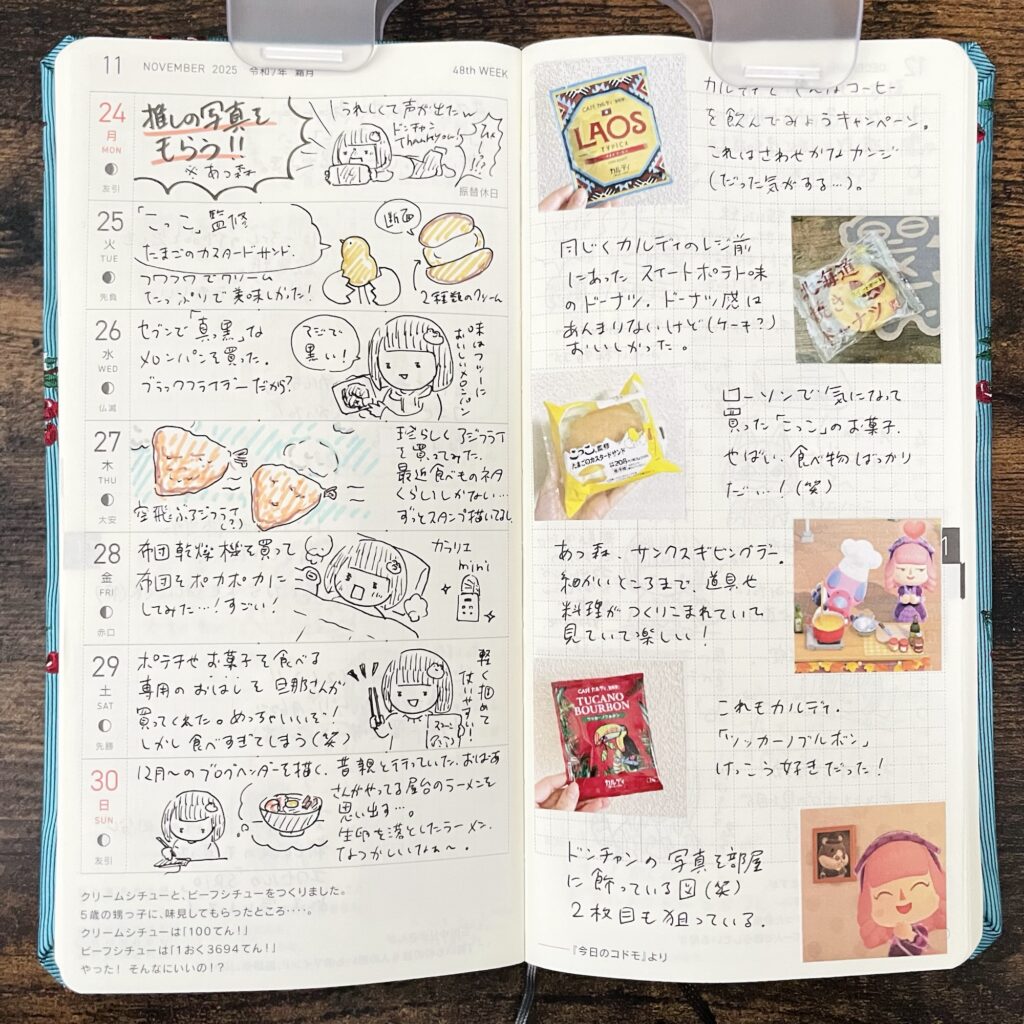 11 NOVEMBER 2025 令和7年 霜月 48th WEEK
24
月
MON
友引
推しの写真を
もらう!!
※あつ森
うれしくて声が出たw
ドンチャン
Thankyou!
振替休日
25
火
TUE
先負
「こっこ」監修
たまごのカスタードサンド.
フワフワでクリーム
たっぷりで美味しかった!
断面
2種類のクリーム
26
水
WED
仏滅
セブンで「真っ黒」な
メロンパンを買った.
ブラックフライデーだから?
まじで
黒い!
味はフツーに
おいしいメロンパン
27
木
THU
大安
空飛ぶアジフライ
(?)
珍らしくアジフライ
を買ってみた.
最近食べものネタ
くらいしかない…
ずっとスタンプ描いてるし
28
金
FRI
赤口
布団乾燥機を買って
布団をポカポカに
してみた…!すごい!
カラリエ
mini
29
土
SAT
先勝
ポテチやお菓子を食べる
専用のおはしを旦那さんが
買ってくれた。めっちゃいいぞ!
しかし食べすぎてしまう(笑)
軽く掴めて
使いやすい!
30
日
SUN
友引
12月〜のブログヘッダーを描く.昔親と行っていた.おばあ
さんがやってる屋台のラーメンを
思い出す…
生卵を落としたラーメン.
なつかしいなぁ〜.
クリームシチューと、ビーフシチューをつくりました。
5歳の甥っ子に、味見してもらったところ‥‥。
クリームシチューは「100てん!」
ビーフシチューは「1おく3694てん!」
やった! そんなにいいの!?
CAFE KALDI
LAOS
TYPICA
カルディ
を飲んでみようキャンペーン。
これはさわやかなカンジ
(だった気がする…).
同じくカルディのレジ前
にあったスイートポテト味
のドーナツ.ドーナツ感は
あんまりないけど(ケーキ?)
おいしかった。
北海道
ドーナツ
こっこ監修
たまごのカスタードサンド
ローソンで気になって
買った「こっこ」のお菓子.
やばい.食べ物ばっかり
だ…!(笑)
あつ森、サンクスギビングデー.
細かいところまで、道具や
料理がつくりこまれていて
見ていて楽しい!
1
CAFE KALDI
TUCANO
BOURBON
カルディ
これもカルディ.
「ツッカーノブルボン」
けっこう好きだった!
ドンチャンの写真を部屋
に飾っている図(笑)
2枚目も狙っている.
『今日のコドモ』より